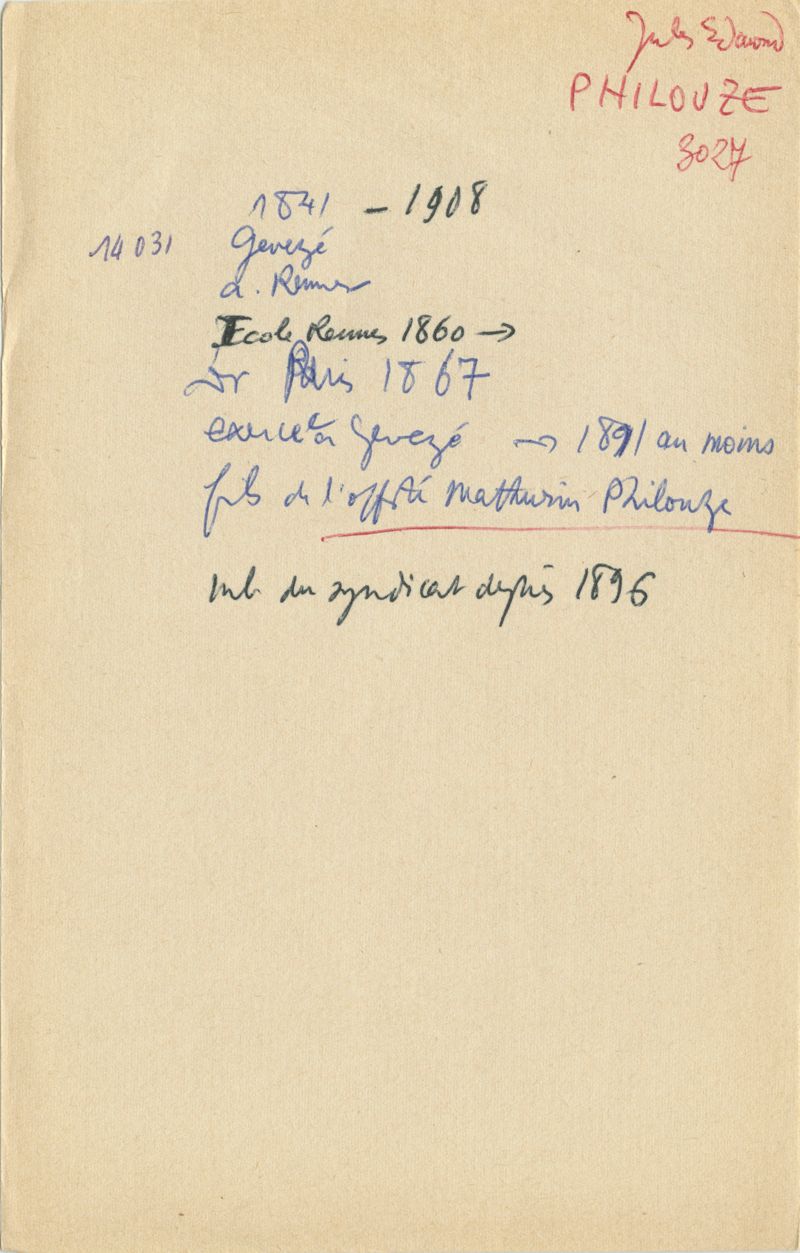 Jules Edouard
PHILOUZE
3027
1841 – 1908
14 031 Gevezé
a. Rennes
Ecole Rennes 1860 →
Dr Paris 1867
exerce à Gevezé → 1891 au moins
fils de l'off Mathurin Philouze
mb. du syndicat depuis 1896